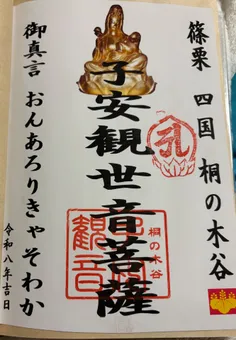 篠栗 四国 桐の木谷
子安観世音菩薩
御真言 おんあろりきゃそわか
令和八年吉日
桐の木谷
観音